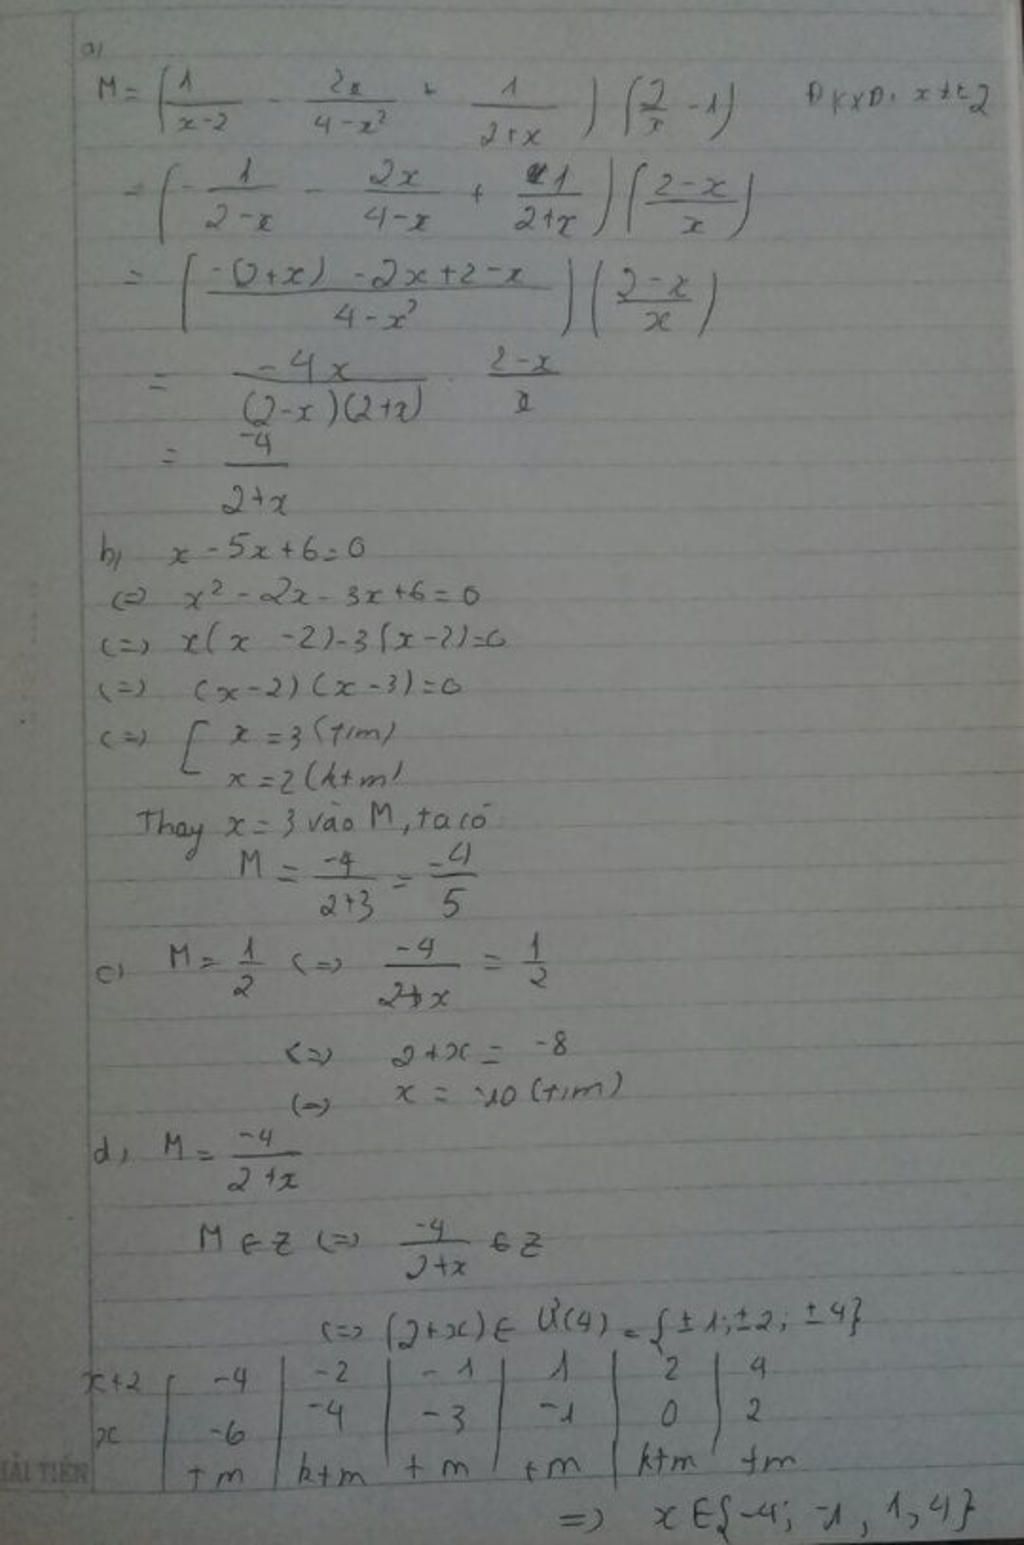 a)
M = (1/(x-2) - 2x/(4-x²) + 1/(2+x)) (2/x - 1) ĐKXĐ: x ≠ ±2
= (-1/(2-x) - 2x/(4-x) + 1/(2+x)) ((2-x)/x)
= ((-(2+x) - 2x + 2 - x)/(4-x²)) ((2-x)/x)
= -4x/((2-x)(2+x)) . (2-x)/x
= -4/(2+x)
b) x - 5x + 6 = 0
(=) x² - 2x - 3x + 6 = 0
(=) x(x - 2) - 3(x - 2) = 0
(=) (x - 2)(x - 3) = 0
(=) [ x = 3 (t/m)
x = 2 (ktm)
Thay x = 3 vào M, ta có
M = -4/(2+3) = -4/5
c) M = 1/2 (=) -4/(2+x) = 1/2
(=) 2 + x = -8
(=) x = -10 (t/m)
d, M = -4/(2+x)
M ∈ Z (=) -4/(2+x) ∈ Z
(=) (2+x) ∈ Ư(4) = {±1; ±2; ±4}
x+2 | -4 | -2 | -1 | 1 | 2 | 4
x | -6 | -4 | -3 | -1 | 0 | 2
| tm | ktm | tm | tm | ktm | tm
=> x ∈ {-4; -1, 1, 4}
HẢI TIẾN